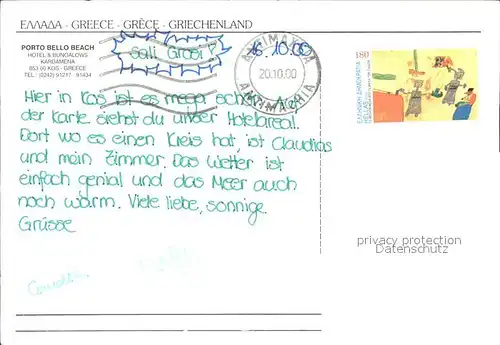 ΕΛΛΑΔΑ - GREECE - GRÈCE - GRIECHENLAND
PORTO BELLO BEACH
HOTEL & BUNGALOWS
KARDAMENA
853 00 KOS - GREECE
TEL.: (0242) 91217 - 91434
Sali Grosi!
16.10.00
ΑΝΤΙΜΑΧΕΙΑ
20.10.00
ANTIMACHIA
180
ΕΛΛΗΝΙΚΗ ΔΗΜΟΚΡΑΤΙΑ
HELLAS
Hier in Kos ist es mega schön. Auf
der Karte siehst du unser Hotelareal.
Dort wo es einen Kreis hat, ist Claudias
und mein Zimmer. Das Wetter ist
einfach genial und das Meer auch
noch warm. Viele liebe, sonnige
Grüsse
privacy protection
Datenschutz